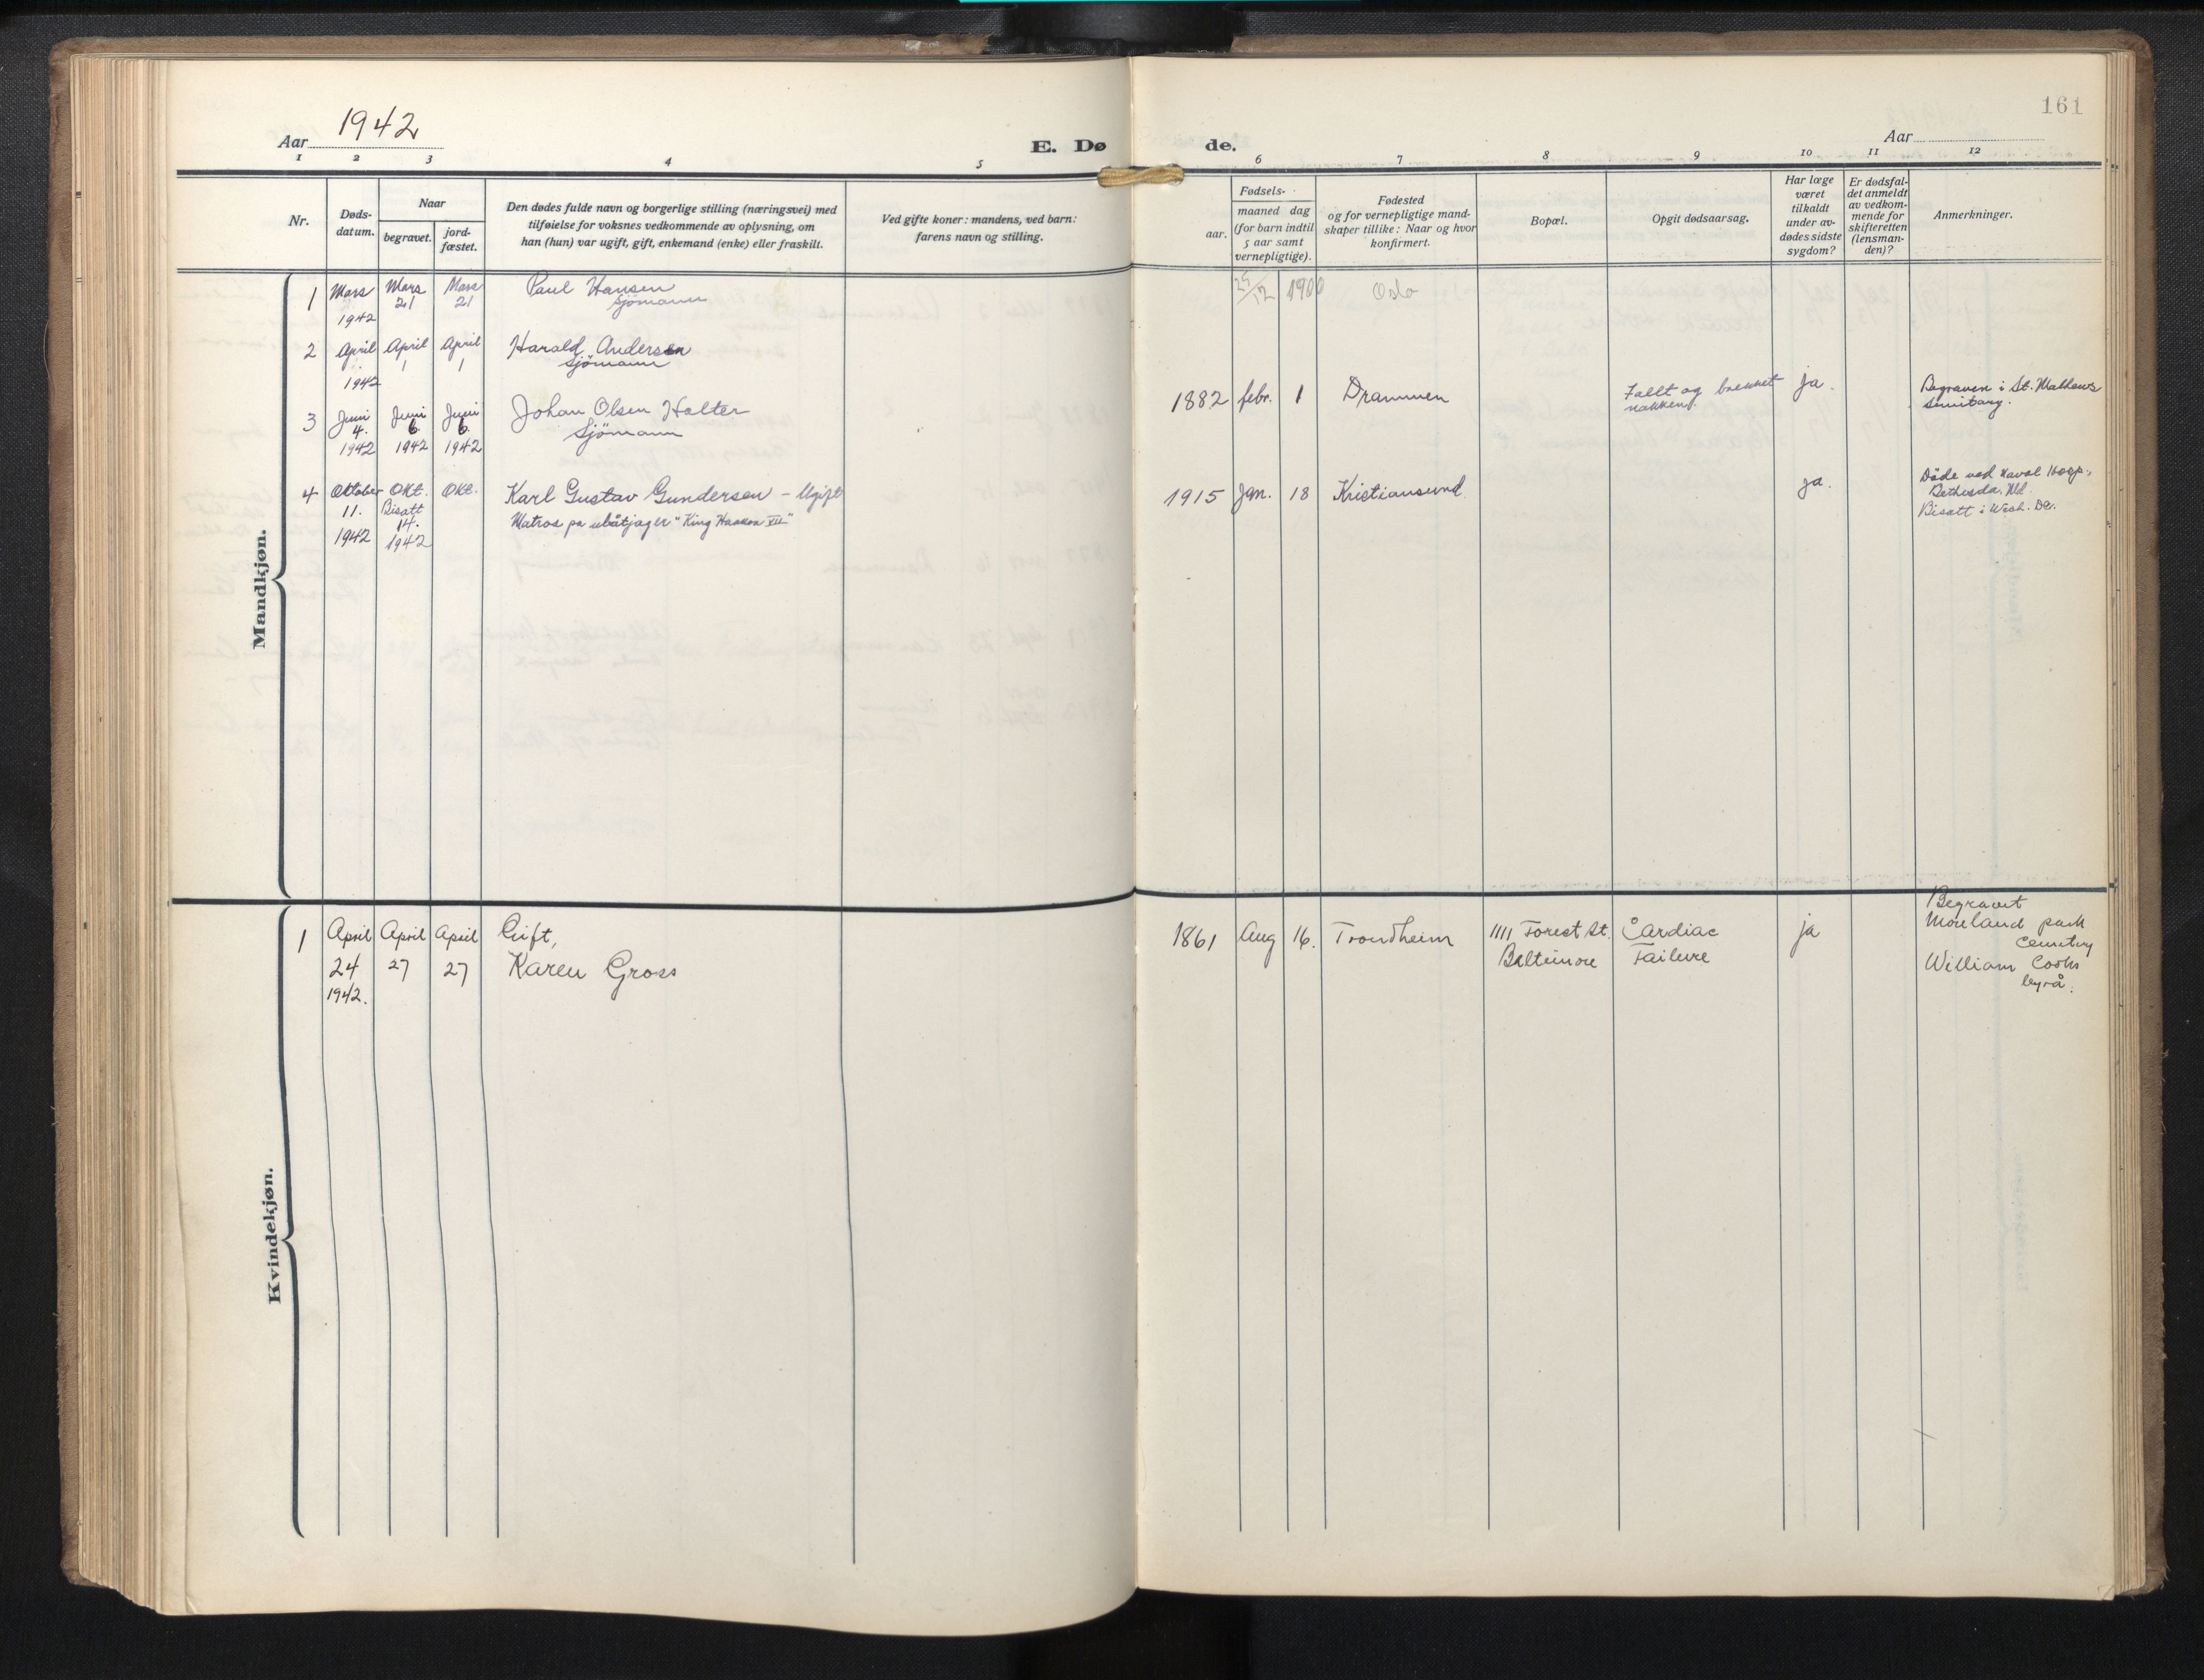 161
Aar 1942
E. Døde.
Aar
1 2 3 4 5 6 7 8 9 10 11 12
Nr.
Døds-
datum.
Naar
begravet.
jord-
fæstet.
Den dødes fulde navn og borgerlige stilling (næringsvei) med
tilføielse for voksnes vedkommende av oplysning, om
han (hun) var ugift, gift, enkemand (enke) eller fraskilt.
Ved gifte koner: mandens, ved barn:
farens navn og stilling.
Fødsels-
aar.
maaned dag
(for barn indtil
5 aar samt
vernepligtige).
Fødested
og for vernepligtige mand-
skaper tillike: Naar og hvor
konfirmert.
Bopæl.
Opgit dødsaarsag.
Har læge
været
tilkaldt
under av-
dødes sidste
sygdom?
Er dødsfal-
det anmeldt
av vedkom-
mende for
skifteretten
(lensman-
den)?
Anmerkninger.
Mandkjøn.
1 Mars Mars Mars Paul Hansen 25/12 1900 Oslo
21 21 Sjömann
1942
2 April April April Harald Andersen
1 1 Sjömann
1942
3 Juni Juni Juni Johan Olsen Holter 1882 febr. 1 Drammen Fallt og brekket ja. Begraven i St. Mathews
4. 6 6. Sjömann nakken.
1942 1942 1942
4 Oktober Okt. Okt. Karl Gustav Gundersen - Ugift 1915 Jan. 18 Kristiansund ja. Döde ved Naval Hosp.,
11. Bisatt Matros på ubåtjager "King Haakon VII" Bethesda. Md.
14. Bisatt i Wash. DC.
1942 1942
Kvindekjøn.
1 April April April Gift, 1861 Aug 16. Trondheim 1111 Forest St. Cardiac ja Begravet
24 27 27 Karen Gross Baltimore Failure Moreland park
1942. Cemetry
William Cooks
byrå.